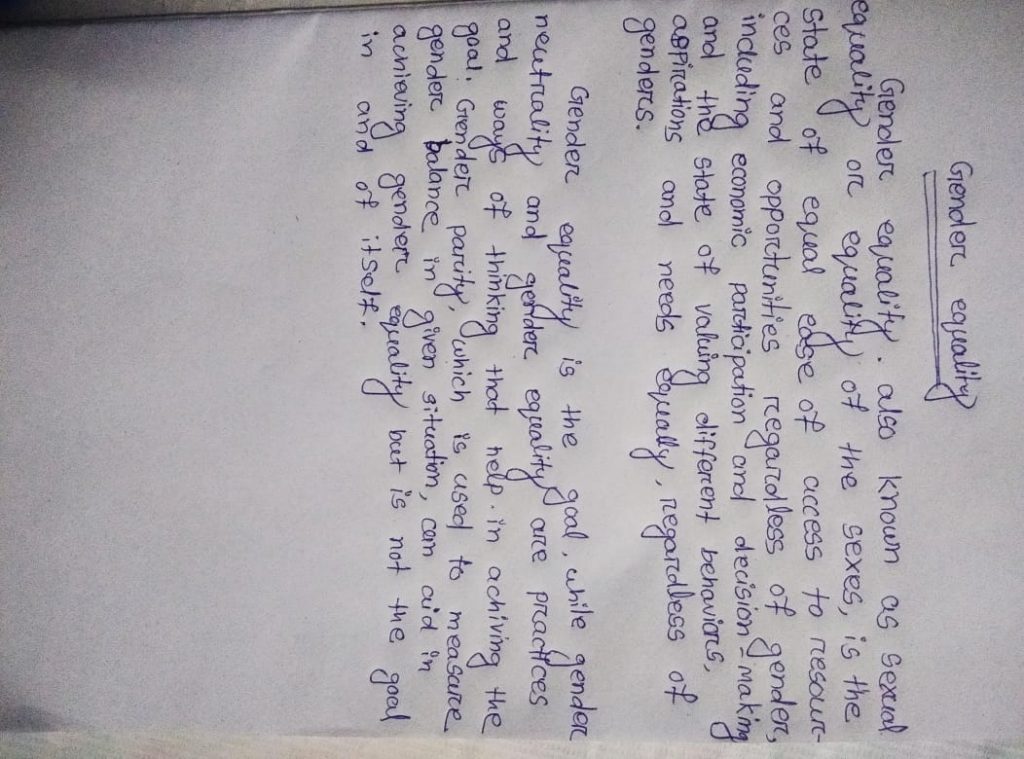 Gender equality
Gender equality. also known as sexual
equality or equality of the sexes, is the
state of equal ease of access to resour-
ces and opportunities regardless of gender,
including economic participation and decision-making
and the state of valuing different behaviors,
aspirations and needs equally, regardless of
genders.
Gender equality is the goal, while gender
neutrality and gender equality are practices
and ways of thinking that help. in achiving the
goal. Gender parity, which is used to measure
gender balance in given situation, can aid in
achieving gender equality but is not the goal
in and of itself.